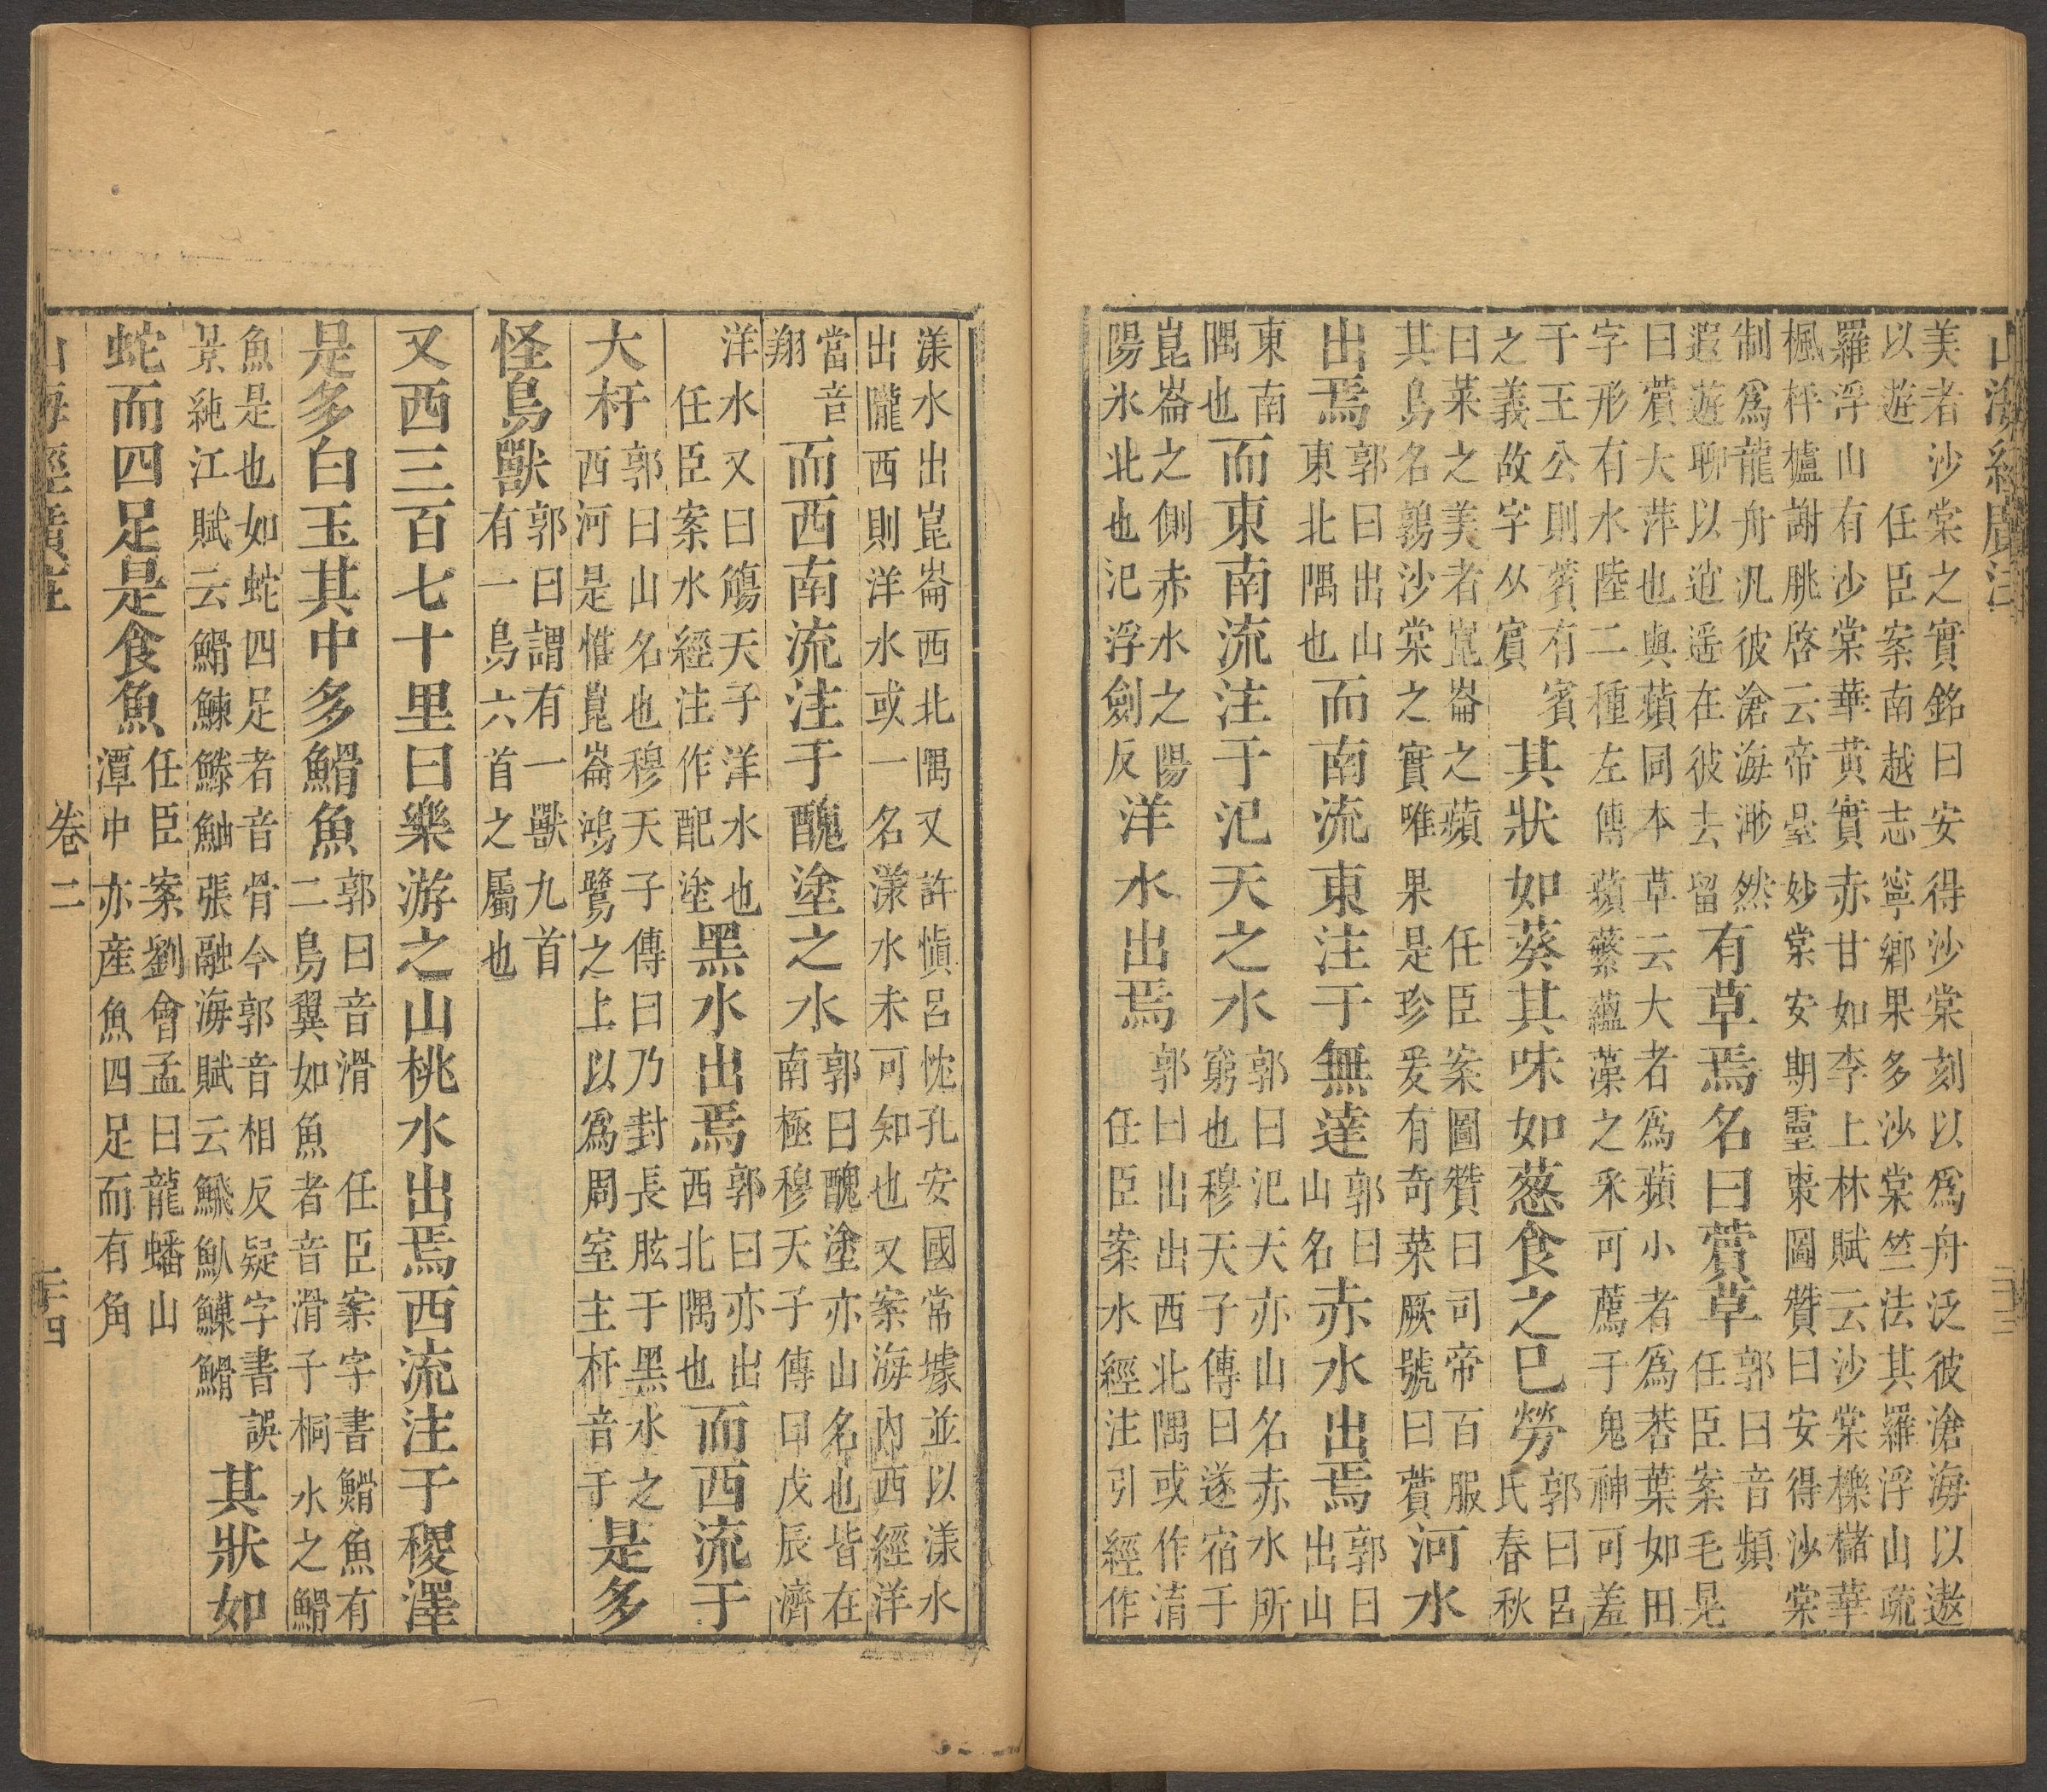 山海經廣注
美者沙棠之實銘曰安得沙棠刻以爲舟泛彼滄海以遨
以遊　任臣案南越志寧鄉果多沙棠竺法其羅浮山疏
羅浮山有沙棠華黄實赤甘如李上林賦云沙棠櫟櫧華
楓枰櫨謝朓啓云帝臺妙棠安期靈棗圖贊曰安得沙棠
制爲龍舟汎彼滄海渺然
遐遊聊以逍遥在彼去留
有草焉名曰薲草
郭曰音頻
任臣案毛晃
曰薲大萍也與蘋同本草云大者爲蘋小者爲荇葉如田
字形有水陸二種左傳蘋蘩蘊藻之采可薦于鬼神可羞
于王公則薲有賓
之義故字从賓
其狀如葵其味如葱食之已勞
郭曰呂
氏春秋
曰菜之美者崑崙之蘋　任臣案圖贊曰司帝百服
其鳥名鶉沙棠之實唯果是珍爰有奇菜厥號曰薲
河水
出焉
郭曰出山
東北隅也
而南流東注于無達
郭曰
山名
赤水出焉
郭曰
出山
東南
隅也
而東南流注于氾天之水
郭曰氾天亦山名赤水所
窮也穆天子傳曰遂宿于
崑崙之側赤水之陽
陽水北也氾浮劍反
洋水出焉
郭曰出出西北隅或作淯
任臣案水經注引經作
漾水出崑崙西北隅又許慎呂忱孔安國常璩並以漾水
出隴西則洋水或一名漾水未可知也又案海內西經洋
當音
翔
而西南流注于醜塗之水
郭曰醜塗亦山名也皆在
南極穆天子傳曰戊辰濟
洋水又曰觴天子洋水也
任臣案水經注作配塗
黑水出焉
郭曰亦出
西北隅也
而西流于
大杅
郭曰山名也穆天子傳曰乃封長肱于黑水之
西河是惟崑崙鴻鷺之上以爲周室主杅音于
是多
怪鳥獸
郭曰謂有一獸九首
有一鳥六首之屬也
又西三百七十里曰樂游之山桃水出焉西流注于稷澤
是多白玉其中多䱻魚
郭曰音滑　任臣案字書䱻魚有
二鳥翼如魚者音滑子桐水之䱻
魚是也如蛇四足者音骨今郭音相反疑字書誤
景純江賦云䱻鰊䲍鮋張融海賦云䱻
其狀如
蛇而四足是食魚
任臣案劉會孟曰龍蟠山
潭中亦産魚四足而有角
卷二